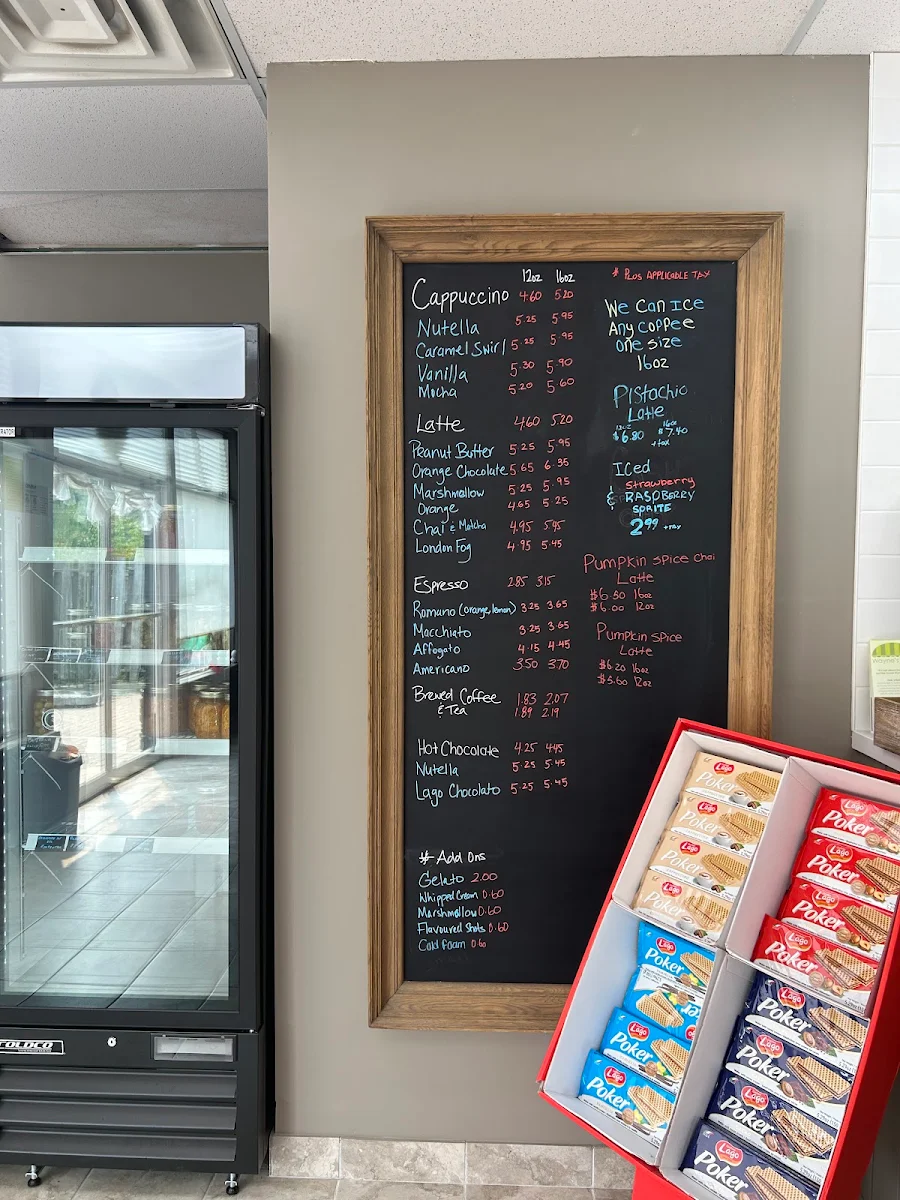 12oz 16oz
Cappuccino 4.60 5.20
Nutella 5.25 5.95
Caramel Swirl 5.25 5.95
Vanilla 5.30 5.90
Mocha 5.20 5.60
Latte 4.60 5.20
Peanut Butter 5.25 5.95
Orange Chocolate 5.65 6.35
Marshmellow 5.25 5.95
Orange 4.65 5.25
Chai & Matcha 4.95 5.45
London Fog 4.95 5.45
Espresso 2.85 3.15
Romano (orange, lemon) 3.25 3.65
Macchiato 3.25 3.65
Affogato 4.15 4.45
Americano 3.50 3.70
Brewed Coffee 1.83 2.07
& Tea 1.89 2.19
Hot Chocolate 4.25 4.45
Nutella 5.25 5.45
Lago Chocolato 5.25 5.45
# Add Ons
Gelato 2.00
Whipped Cream 0.60
Marshmallow 0.60
Flavoured Shots 0.60
Cold foam 0.60
* Plus APPLICABLE TAX
We Can ICE
Any coffee
one size
16oz
PIstachio
Latte
12oz 16oz
$6.80 $7.40
+tax
ICed
Strawberry
& RASPBERRY
SPRITE
2.99 +tax
Pumpkin spice Chai
Latte
$6.50 16oz
$6.00 12oz
Pumpkin spice
Latte
$6.20 16oz
$5.60 12oz
RATOR
COLDCO
Lago
Poker
Lago
Poker
Lago
Poker
Lago
Poker
Lago
Poker
Lago
Poker
Lago
Poker
Lago
Poker
Lago
Poker
Lago
Lago
Poker
Lago
Poker
Lago
Poker
Lago
Poker
Lago
Poker
Lago
Poker